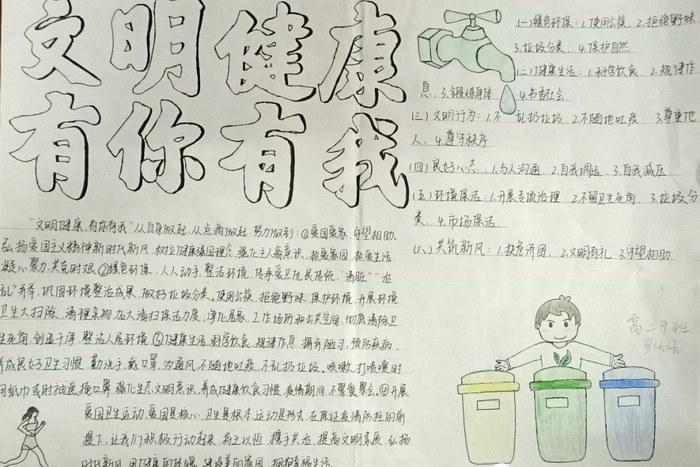 文明健康
有你有我
(一)绿色环保:1.使用公筷、2.拒绝野味
3.垃圾分类、4.保护自然
(二)健康生活:1.科学饮食、2.规律作
息、3.锻炼身体 4.书香社会
(三)文明行为:1.不乱扔垃圾、2.不随地吐痰 3.尊重他
人、4.遵守秩序
(四)良好心态:1.与人沟通 2.自我调适、3.自我减压
(五)环境保洁:1.开展专项治理、2.不留卫生死角、3.垃圾分
类、4.市场保洁
(六)共筑新风:1.扶危济困、2.文明有礼 3.守望相助.
"文明健康,有你有我"从自身做起,从点滴做起,努力做到:①爱国爱家,守望相助.
弘扬爱国主义精神新时代新风,树立健康强国理念,强化主人翁意识,热爱家园,热爱生活
凝心聚力,共克时艰.②绿色环保,人人动手,整治环境,传承爱卫优良传统,"清脏""治
乱"并举,巩固环境整治成果,做好垃圾分类,使用公筷,拒绝野味,保护环境,开展环境
卫生大扫除,清理杂物,加大清扫保洁力度,净化居家、工作场所和公共空间,彻底清除卫
生死角,创造干净,整洁人居环境.③健康生活,科学饮食,规律作息,摒弃陋习,预防疾病,
养成良好卫生习惯,勤洗手,戴口罩,勤通风,不随地吐痰,不乱扔垃圾,咳嗽、打喷嚏时
用纸巾或肘袖遮掩口鼻,强化生态文明意识,养成健康饮食习惯,疫情期间,不聚餐聚会.④开展
爱国卫生运动,爱国是核心,卫生是根本,运动是形式,在保证疫情防控的前
提下,让我们积极行动起来,持之以恒,携手共治,提高文明素质,弘扬
时代新风,用健康的体魄,建设美丽家园,拥抱幸福生活.
高二9班